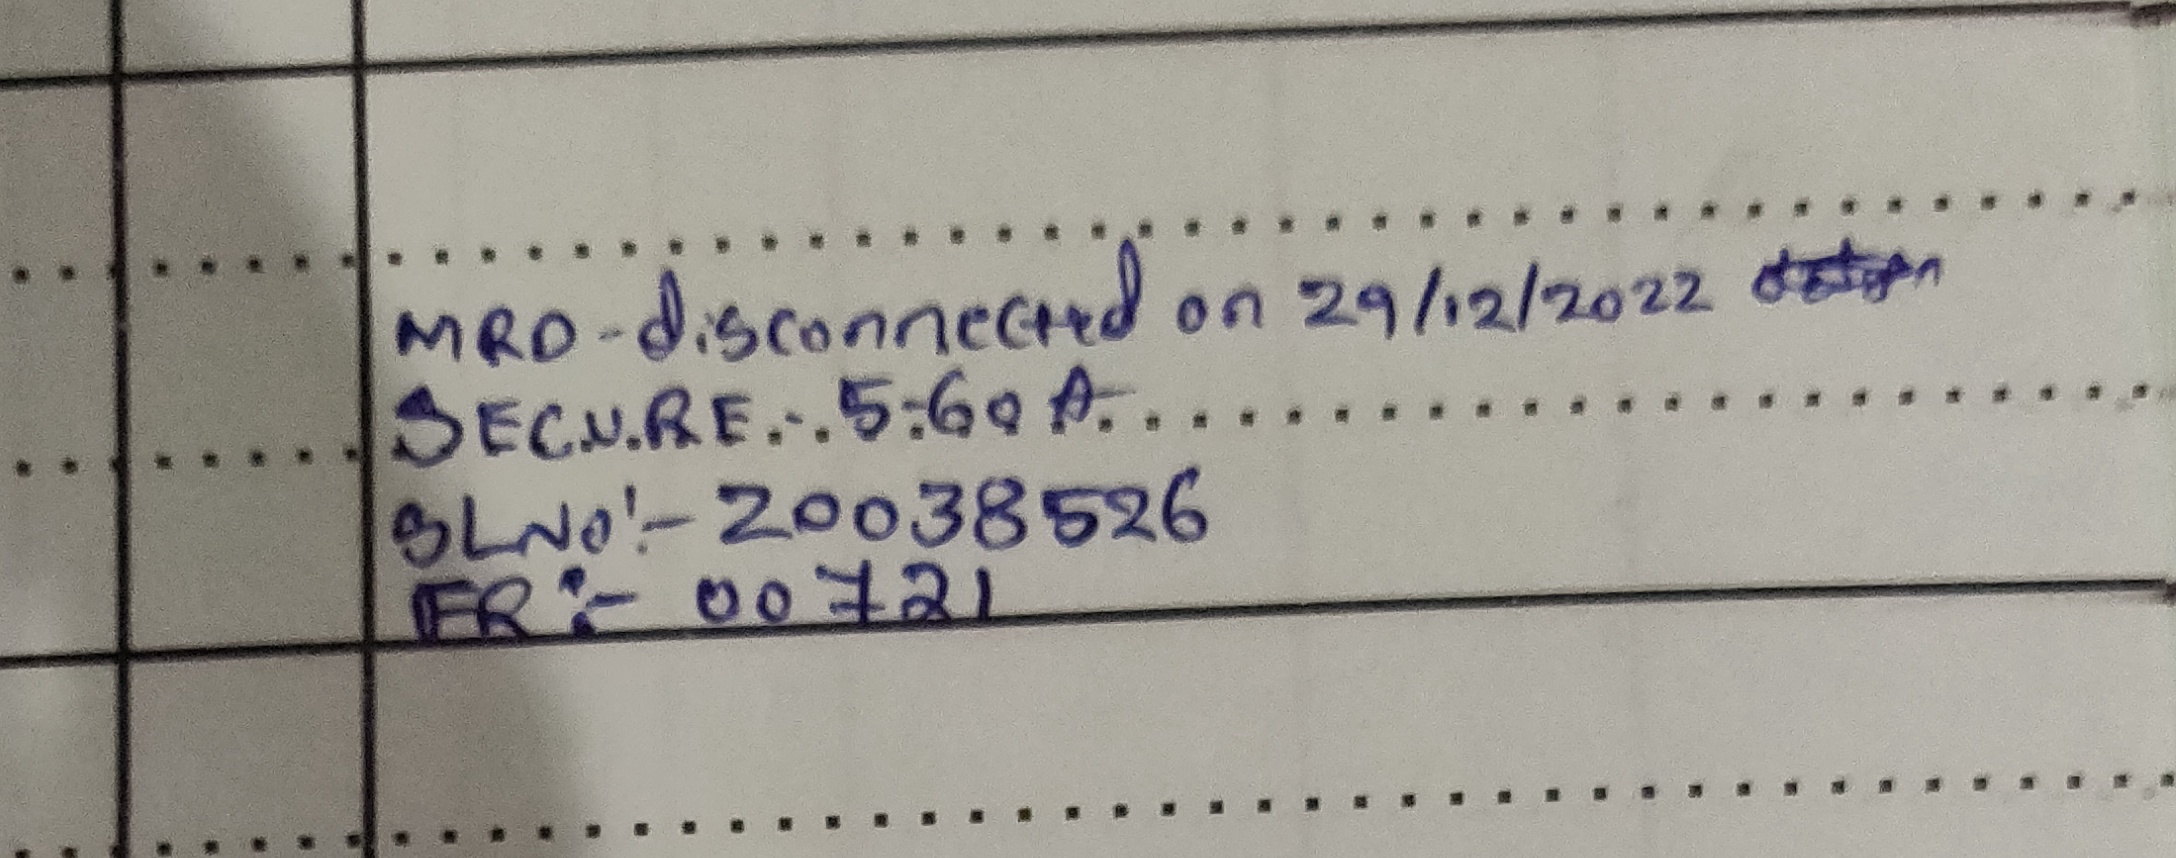 MRD-disconnected on 29/12/2022
SECURE - 5-60 A
SLNO:- 20038526
FR:- 00721